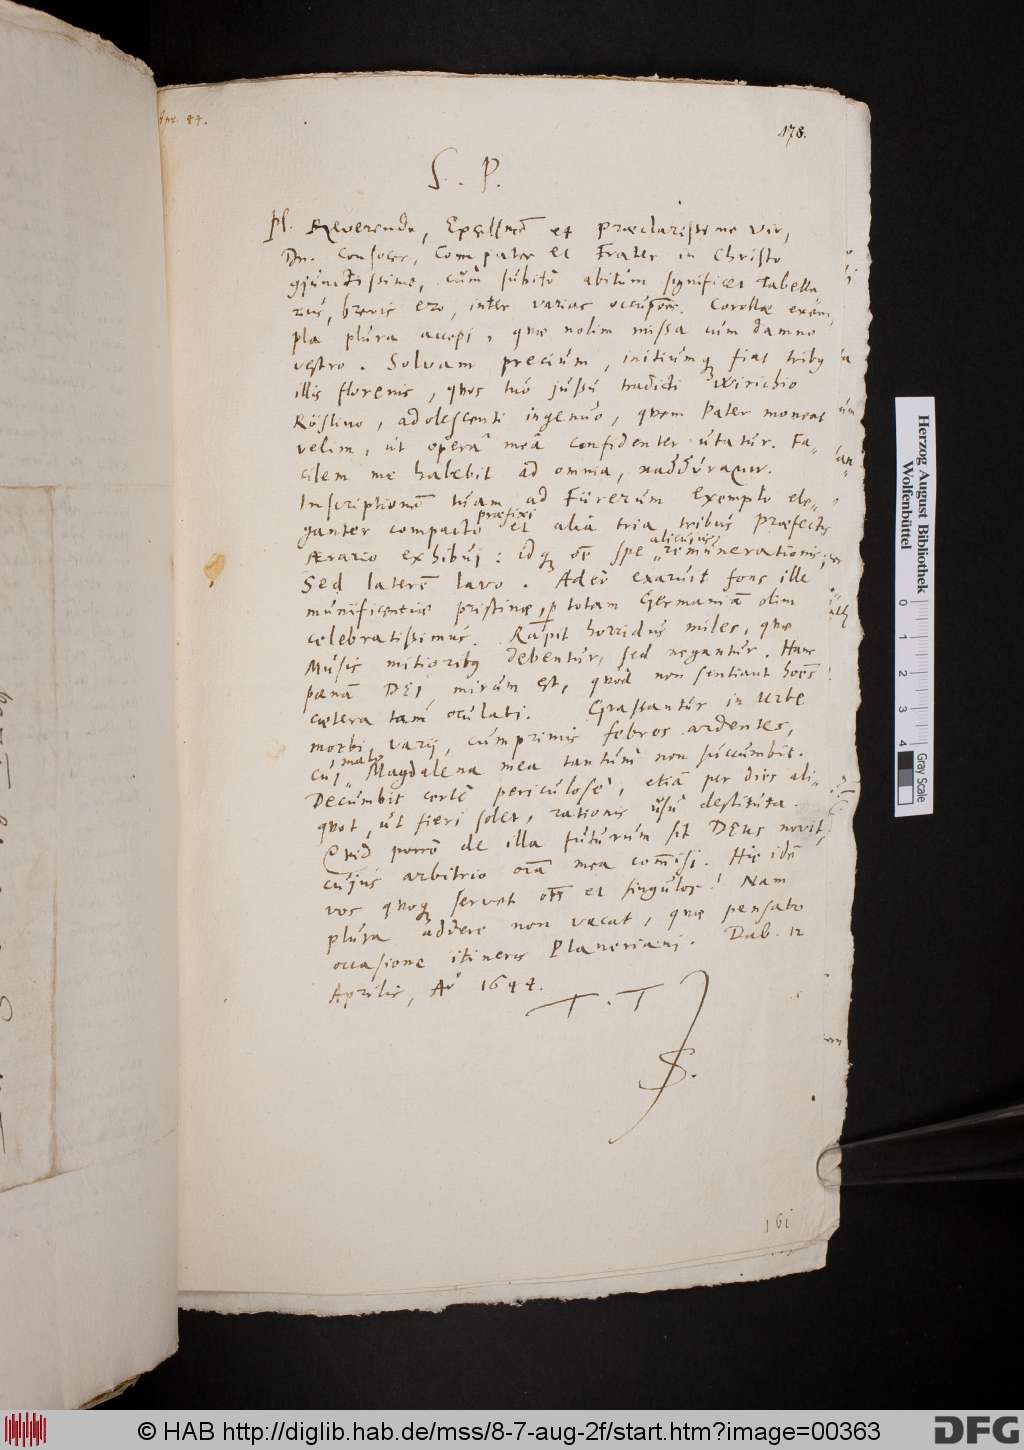 178.
S. P.
Pl. Reverende, Excellme et Præclarissime Vir,
Dn. Consocer, Compater et Frater in Christo
cjunctissime, cum subitũ abitum significet Tabella
rius, brevis ero, inter varias occupões. Corollæ exem,
pla plura accepi, quæ nolim missa cum damno
vestro. Solvam precium, initiumq fiat tribg
illis florenis, quos tuo jussu tradidi Wirichio
Röslino, adolescenti ingenuo, quem pater moneat
velim, ut opera mea confidenter utatur. Fa-
cilem me habebit ad omnia,
Inscriptionẽ tuam ad Fürerum exemplo ele-
ganter compacto præfixi et alia tria tribus Præfectis
Ærario exhibui: idq spe alicujus remunerationis.
Sed laterẽ lavo. Adeò exaruit fons ille
munificentiæ pristinæ, p totam Germaniã olim
celebratissimus. Rapit horridus miles, quæ
Musis mitioribg debentur, sed negantur. Hanc
pænã DEI mirum est, quòd non sentiant hoẽs
cætera tam oculati. Grassantur in Urbe
morbi varij, cumprimis febres ardentes,
cui malo Magdalena mea tantum non succumbit.
Decumbit certè periculosè, etiã per dies ali-
quot, ut fieri solet, rationis usu destituta.
Quid porrò de illa futurum sit DEus novit,
cujus arbitrio oĩa mea comisi. Hic idẽ
vos quoq servet oẽs et singulos! Nam
plura addere non vacat, quæ pensabo
occasione itineris Planeriani. Dab. 12
Aprilis, Aõ 1644.
T. T
S.
161
Herzog August Bibliothek
Wolfenbüttel
0 1 2 3 4
Gray Scale
© HAB http://diglib.hab.de/mss/8-7-aug-2f/start.htm?image=00363
DFG